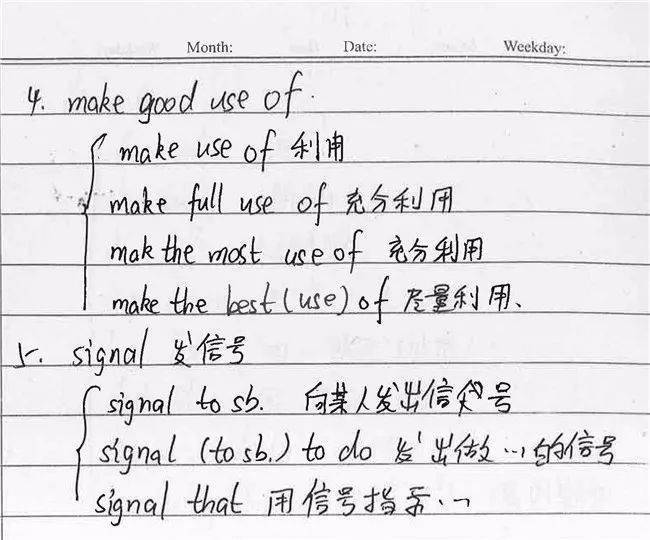 Month: Date: Weekday:
4. make good use of.
make use of 利用
make full use of 充分利用
mak the most use of 充分利用
make the best (use) of 尽量利用、
5. signal 发信号
signal to sb. 向某人发出信号
signal (to sb.) to do 发出做…的信号
signal that 用信号指示…